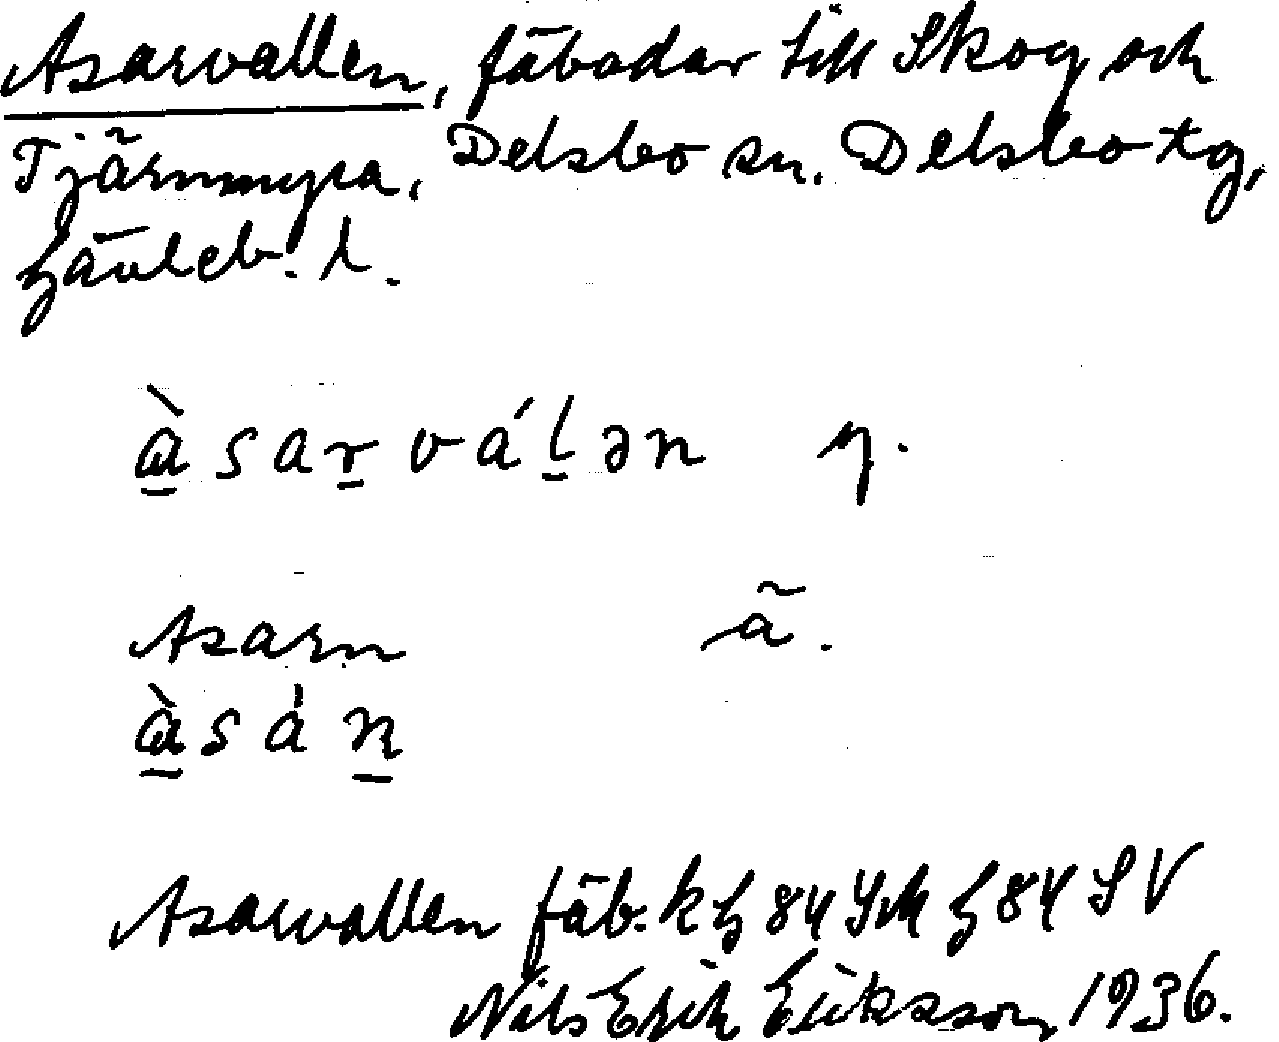 Asarvallen, fäbodar till Skog och
Tjärnmyra, Delsbo sn. Delsbo tg,
Gävleb. l.
àsarválən η.
Asarn ã.
àsán
Asarvallen fäb. k G 84 G 84 SV
Nils Erik Eriksson 1936.